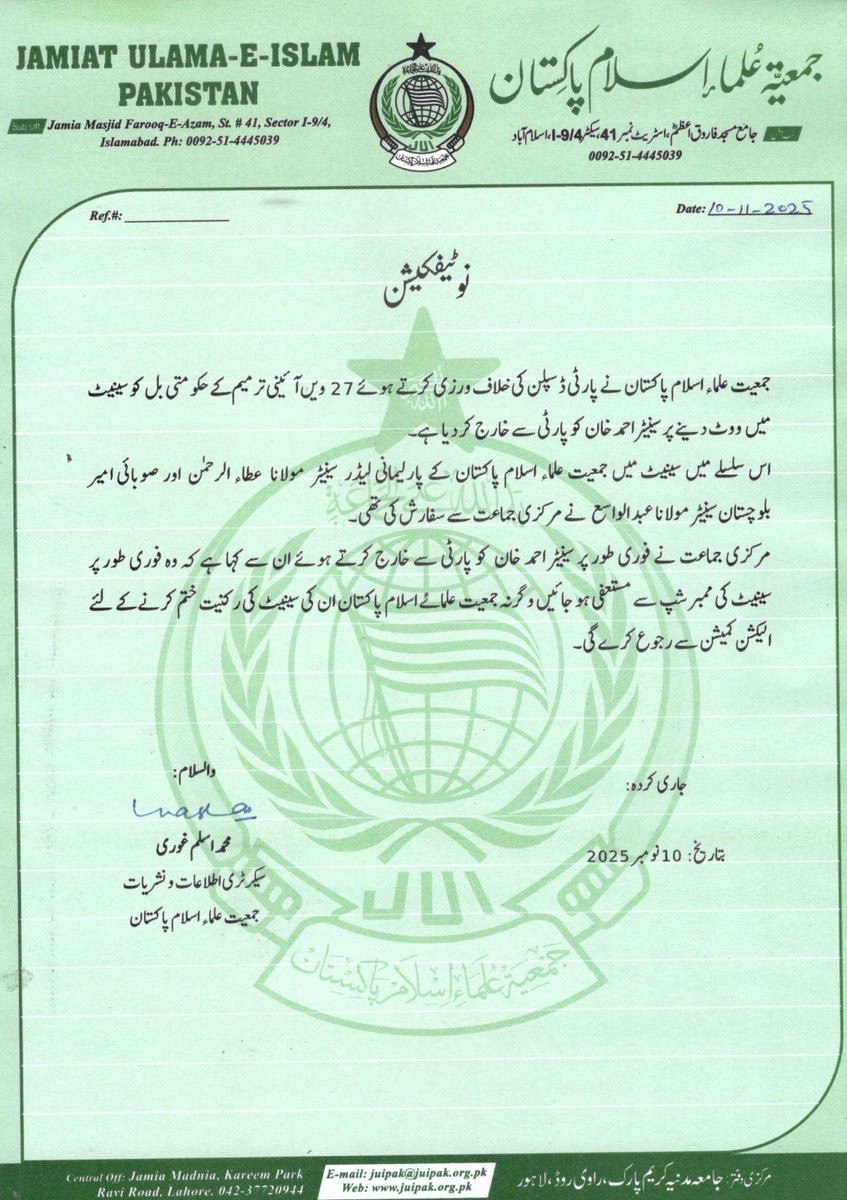 JAMIAT ULAMA-E-ISLAM
PAKISTAN
Sub Off
Jamia Masjid Farooq-E-Azam, St. # 41, Sector I-9/4,
Islamabad. Ph: 0092-51-4445039
جمعیۃ عُلماءِ اسلام پاکِستان
جامع مسجد فاروق اعظمؓ، اسٹریٹ نمبر 41، سیکٹر I-9/4، اسلام آباد
0092-51-4445039
جمعیة علماء اسلام پاکستان
Ref.#:
Date: 10-11-2025
نوٹیفکیشن
جمعیت علماء اسلام پاکستان نے پارٹی ڈسپلن کی خلاف ورزی کرتے ہوئے 27 ویں آئینی ترمیم کے حکومتی بل کو سینیٹ
میں ووٹ دینے پر سینیٹر احمد خان کو پارٹی سے خارج کر دیا ہے۔
اس سلسلے میں سینیٹ میں جمعیت علماء اسلام پاکستان کے پارلیمانی لیڈر سینیٹر مولانا عطاء الرحمٰن اور صوبائی امیر
بلوچستان سینیٹر مولانا عبدالواسع نے مرکزی جماعت سے سفارش کی تھی۔
مرکزی جماعت نے فوری طور پر سینیٹر احمد خان کو پارٹی سے خارج کرتے ہوئے ان سے کہا ہے کہ وہ فوری طور پر
سینیٹ کی ممبر شپ سے مستعفی ہو جائیں وگرنہ جمعیت علمائے اسلام پاکستان ان کی سینیٹ کی رکنیت ختم کرنے کے لئے
الیکشن کمیشن سے رجوع کرے گی۔
جاری کردہ:
والسلام:
محمد اسلم غوری
بتاریخ: 10 نومبر 2025
سیکرٹری اطلاعات و نشریات
جمعیت علماء اسلام پاکستان
جَمْعِیَّة عُلَمَاءِ اِسْلَام پَاکِسْتَان
Central Off: Jamia Madnia, Kareem Park
Ravi Road, Lahore. 042-37720944
E-mail: juipak@juipak.org.pk
Web: www.juipak.org.pk
مرکزی دفتر: جامعہ مدنیہ کریم پارک، راوی روڈ، لاہور